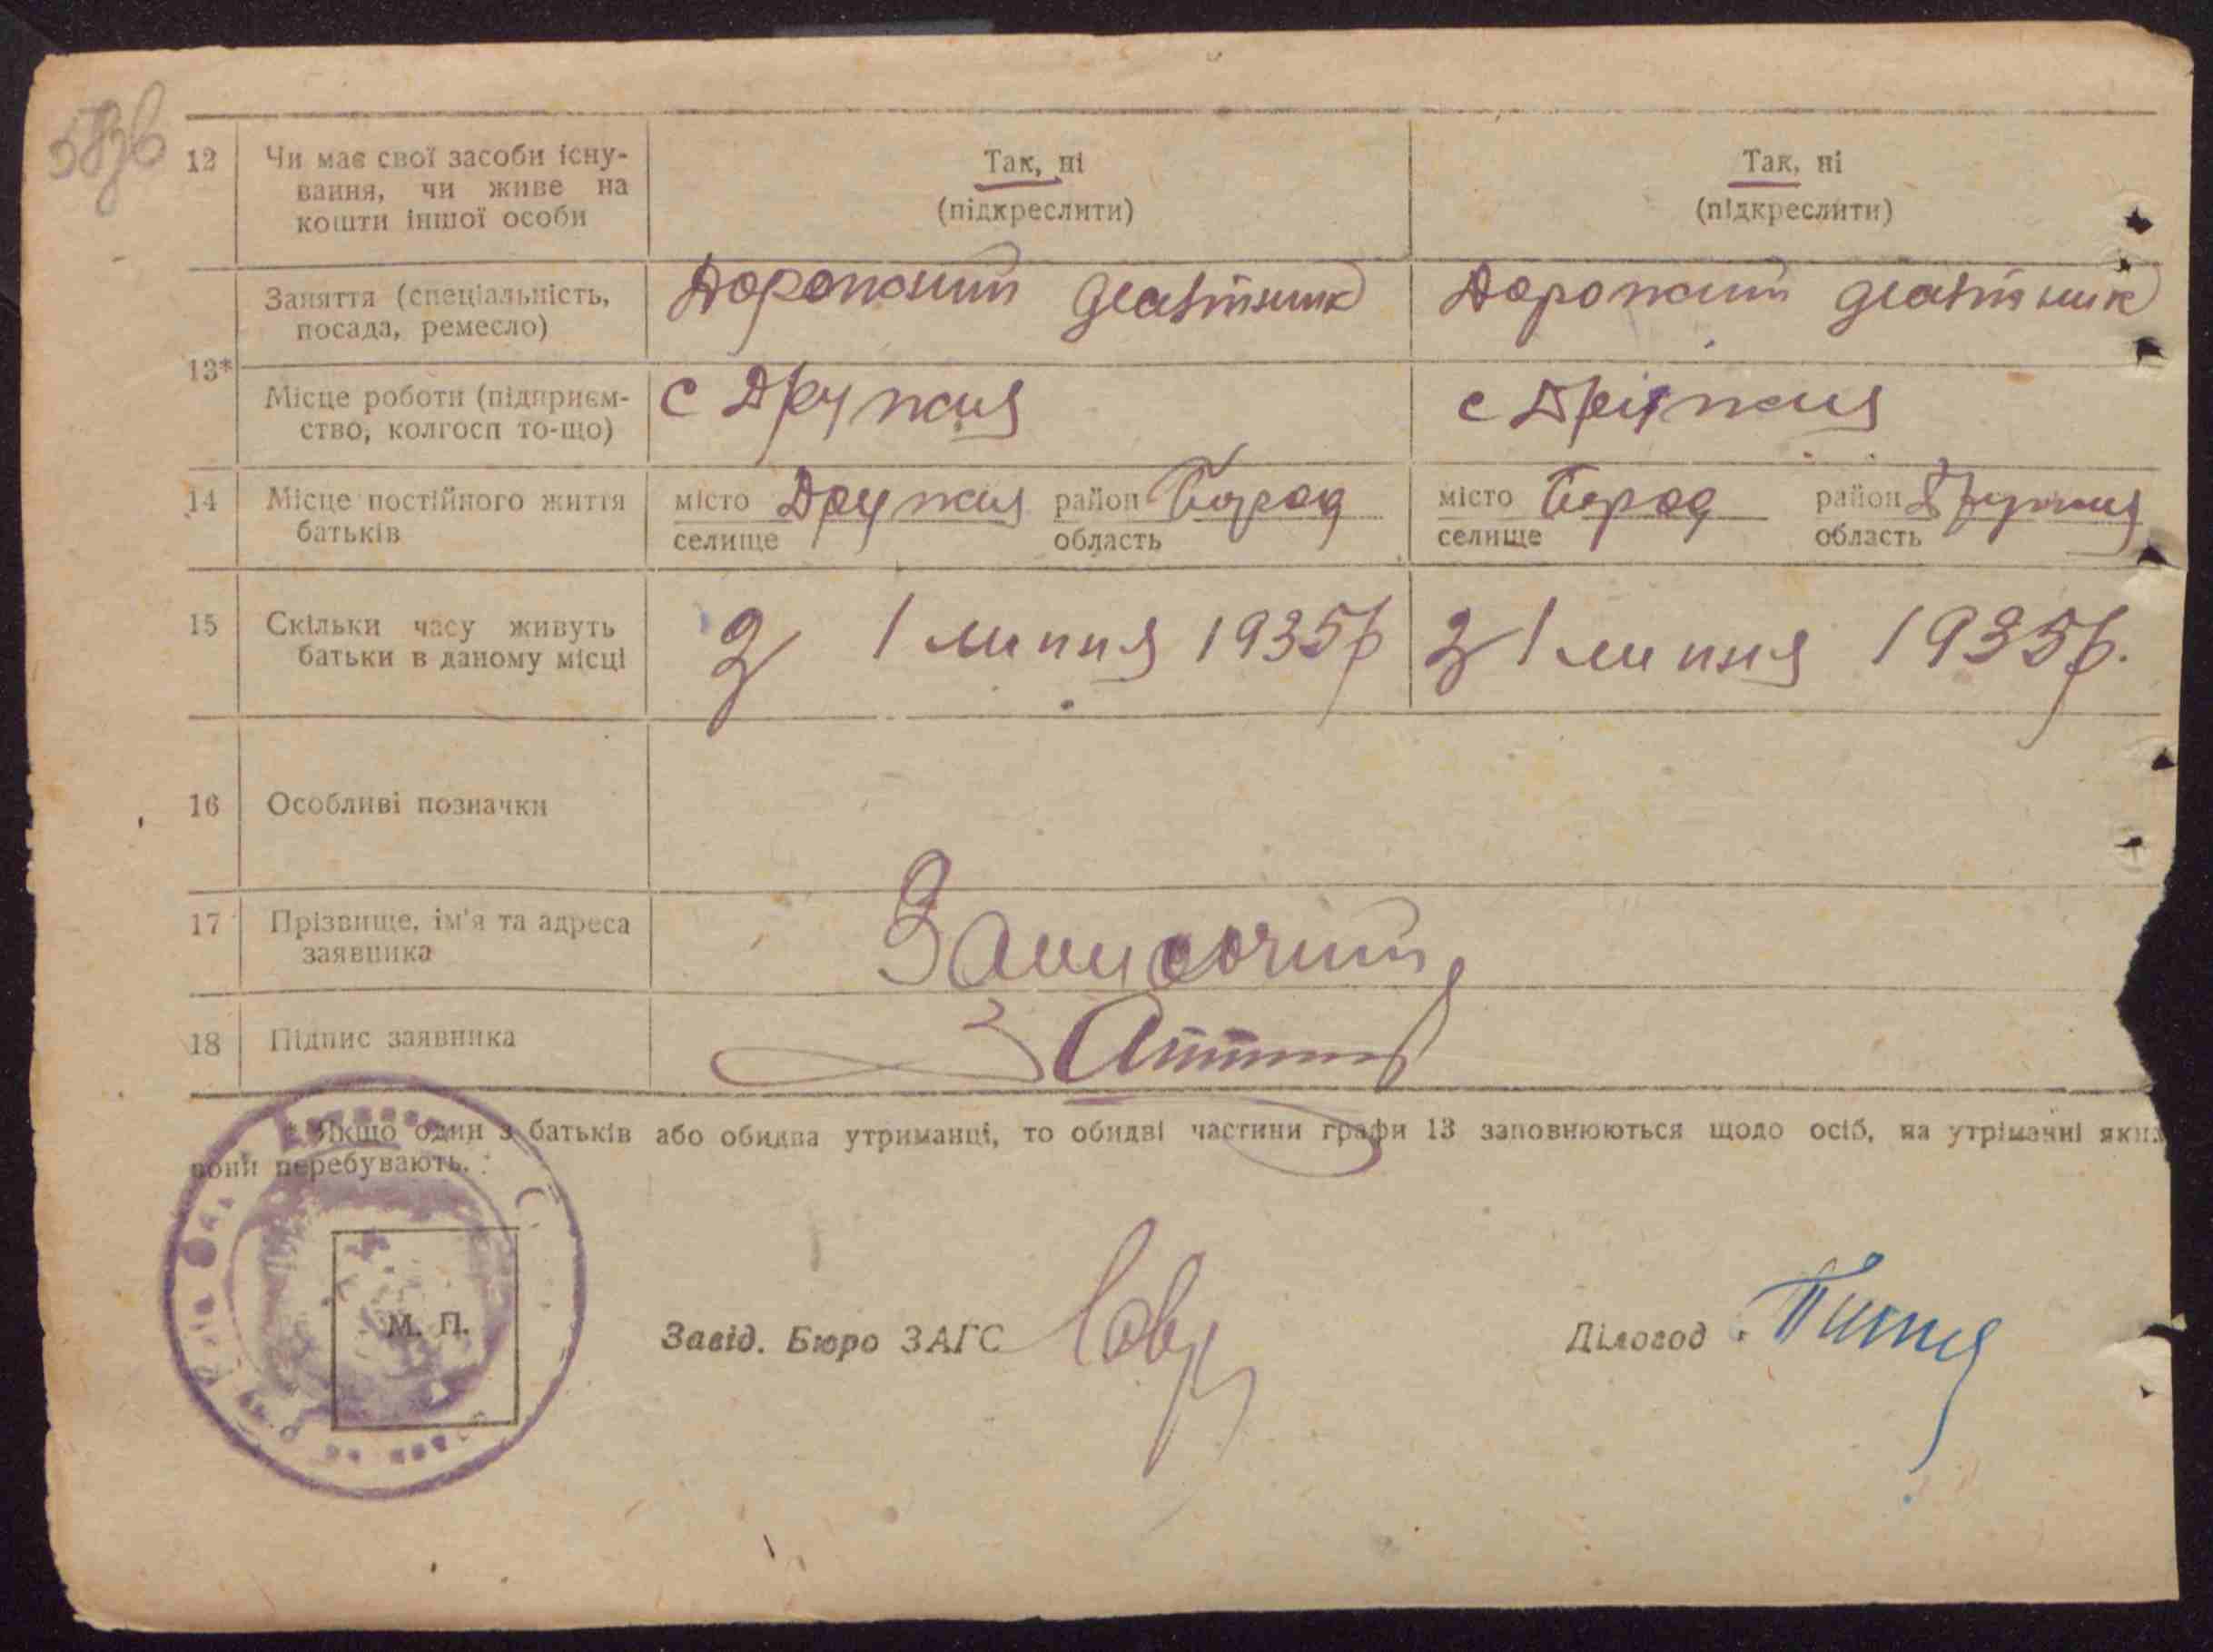 12 Чи має свої засоби існу-
вання, чи живе на
кошти іншої особи
Так, ні
(підкреслити)
Так, ні
(підкреслити)
13*
Заняття (спеціальність,
посада, ремесло)
Дорожний
Дорожний
Місце роботи (підприєм-
ство, колгосп то-що)
с Дружня
с Дружня
14 Місце постійного життя
батьків
місто Дружня район Бород
селище область
місто Бород район Дружня
селище область
15 Скільки часу живуть
батьки в даному місці
З 1 липня 1935 р
З 1 липня 1935 р.
16 Особливі позначки
17 Прізвище, ім'я та адреса
заявника
18 Підпис заявника
* Якщо один з батьків або обидва утриманці, то обидві частини графи 13 заповнюються щодо осіб, на утріманні яких
вони перебувають.
М. П.
Завід. Бюро ЗАГС
Діловод